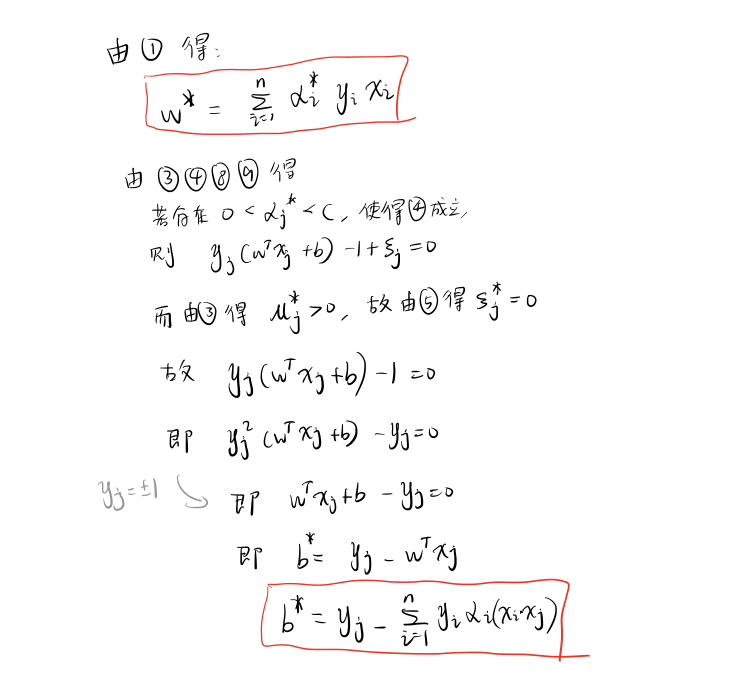 由①得:
w* = Σ_{i=1}^{n} α_i* y_i x_i
由③④⑧⑨得
若存在 0 < α_j* < C, 使得④成立,
则 y_j(w^T x_j + b) - 1 + ξ_j = 0
而由③得 μ_j* > 0, 故由⑤得 ξ_j* = 0
故 y_j(w^T x_j + b) - 1 = 0
即 y_j^2 (w^T x_j + b) - y_j = 0
y_j = ±1
即 w^T x_j + b - y_j = 0
即 b* = y_j - w^T x_j
b* = y_j - Σ_{i=1}^{n} y_i α_i (x_i·x_j)